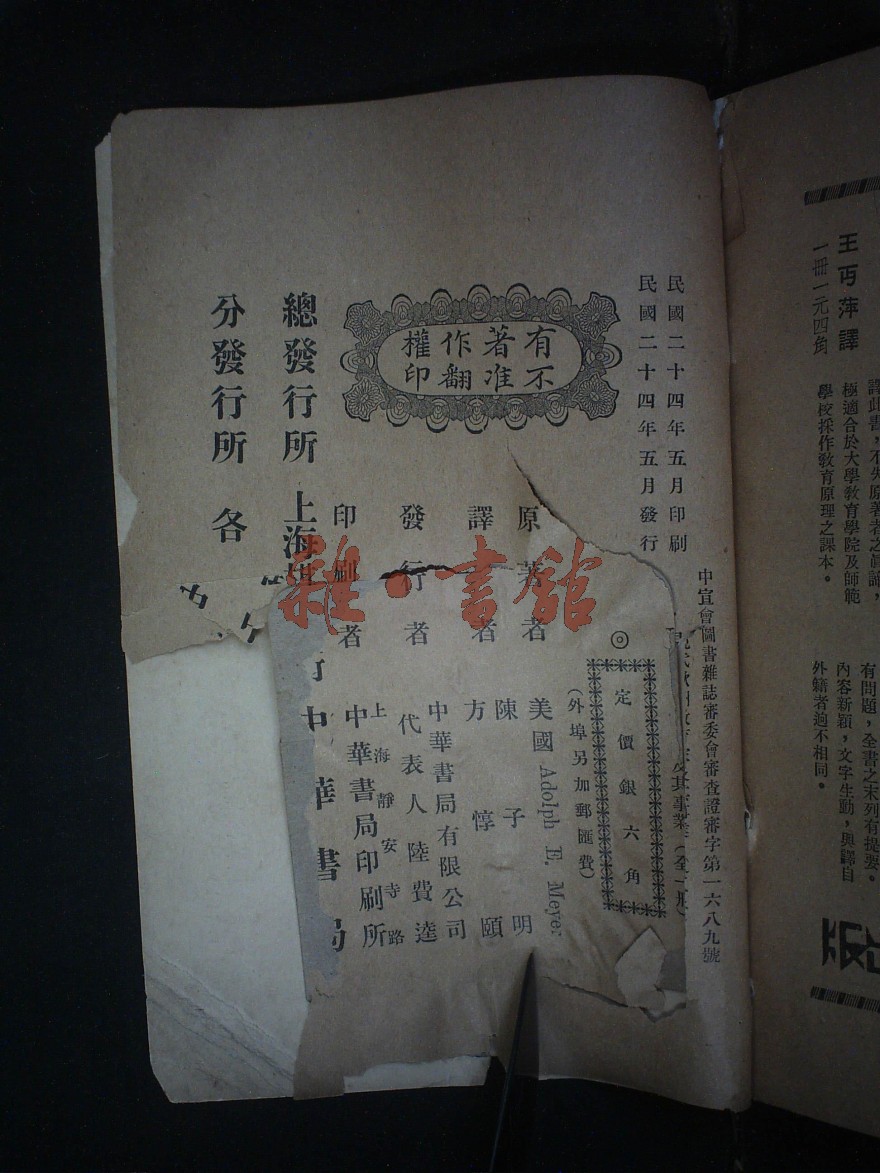 王丏萍譯
一冊一元四角
譯此書，不失原著者之眞諦，
極適合於大學敎育學院及師範
學校採作敎育原理之課本。
有問題，全書之末列有提要。
內容新穎，文字生動，與譯自
外籍者逈不相同。
中宣會圖書雜誌審委會審查證審字第一六八九號
民國二十四年五月印刷
民國二十四年五月發行
及其事業
◎
定價銀六角
(外埠另加郵匯費)
有著作權
不准翻印
原著者 美國 Adolph E. Meyer
譯者 陳子明
方惇頤
發行者 中華書局有限公司
代表人 陸費逵
印刷者 上海靜安寺路
中華書局印刷所
總發行所 上海 中華書局
分發行所 各
雜·書館